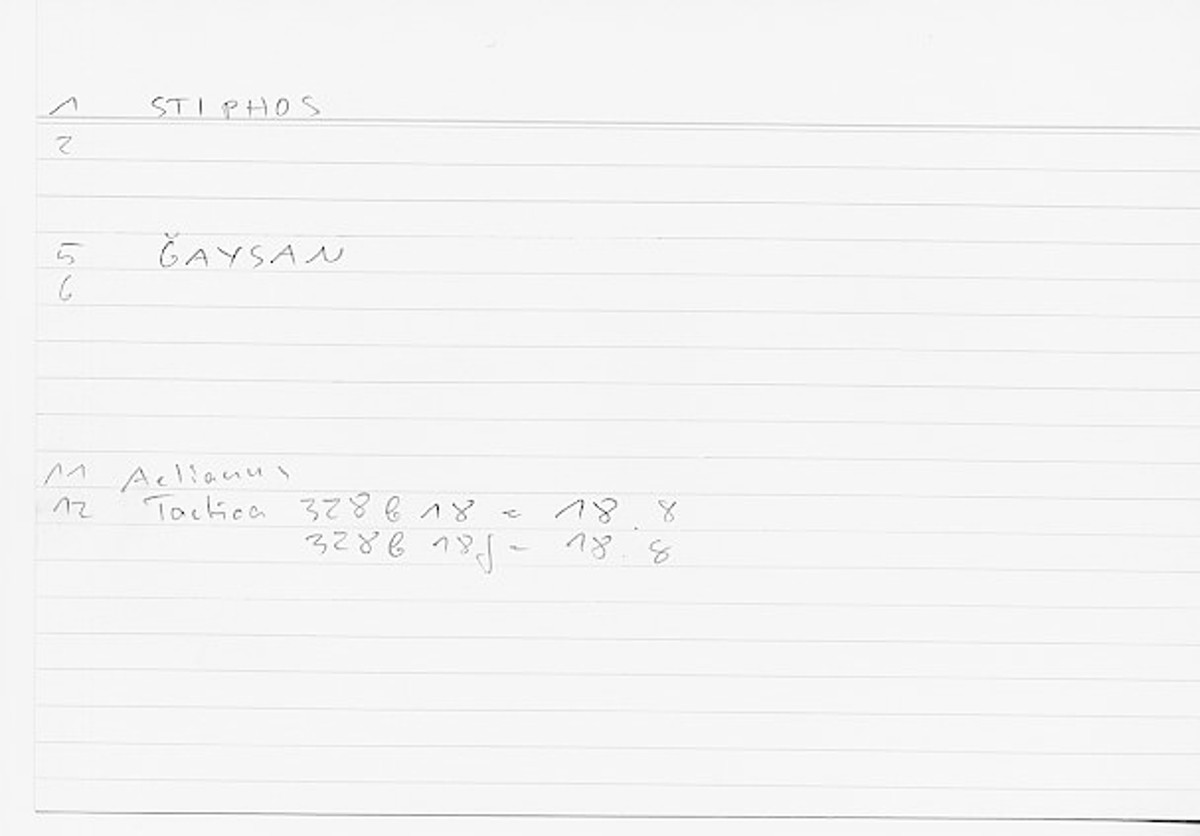 1 STIPHOS
2
5 ǦAYSAN
6
11 Aelianus
12 Tactica 328b 18 = 18.8
328b 18f = 18.8